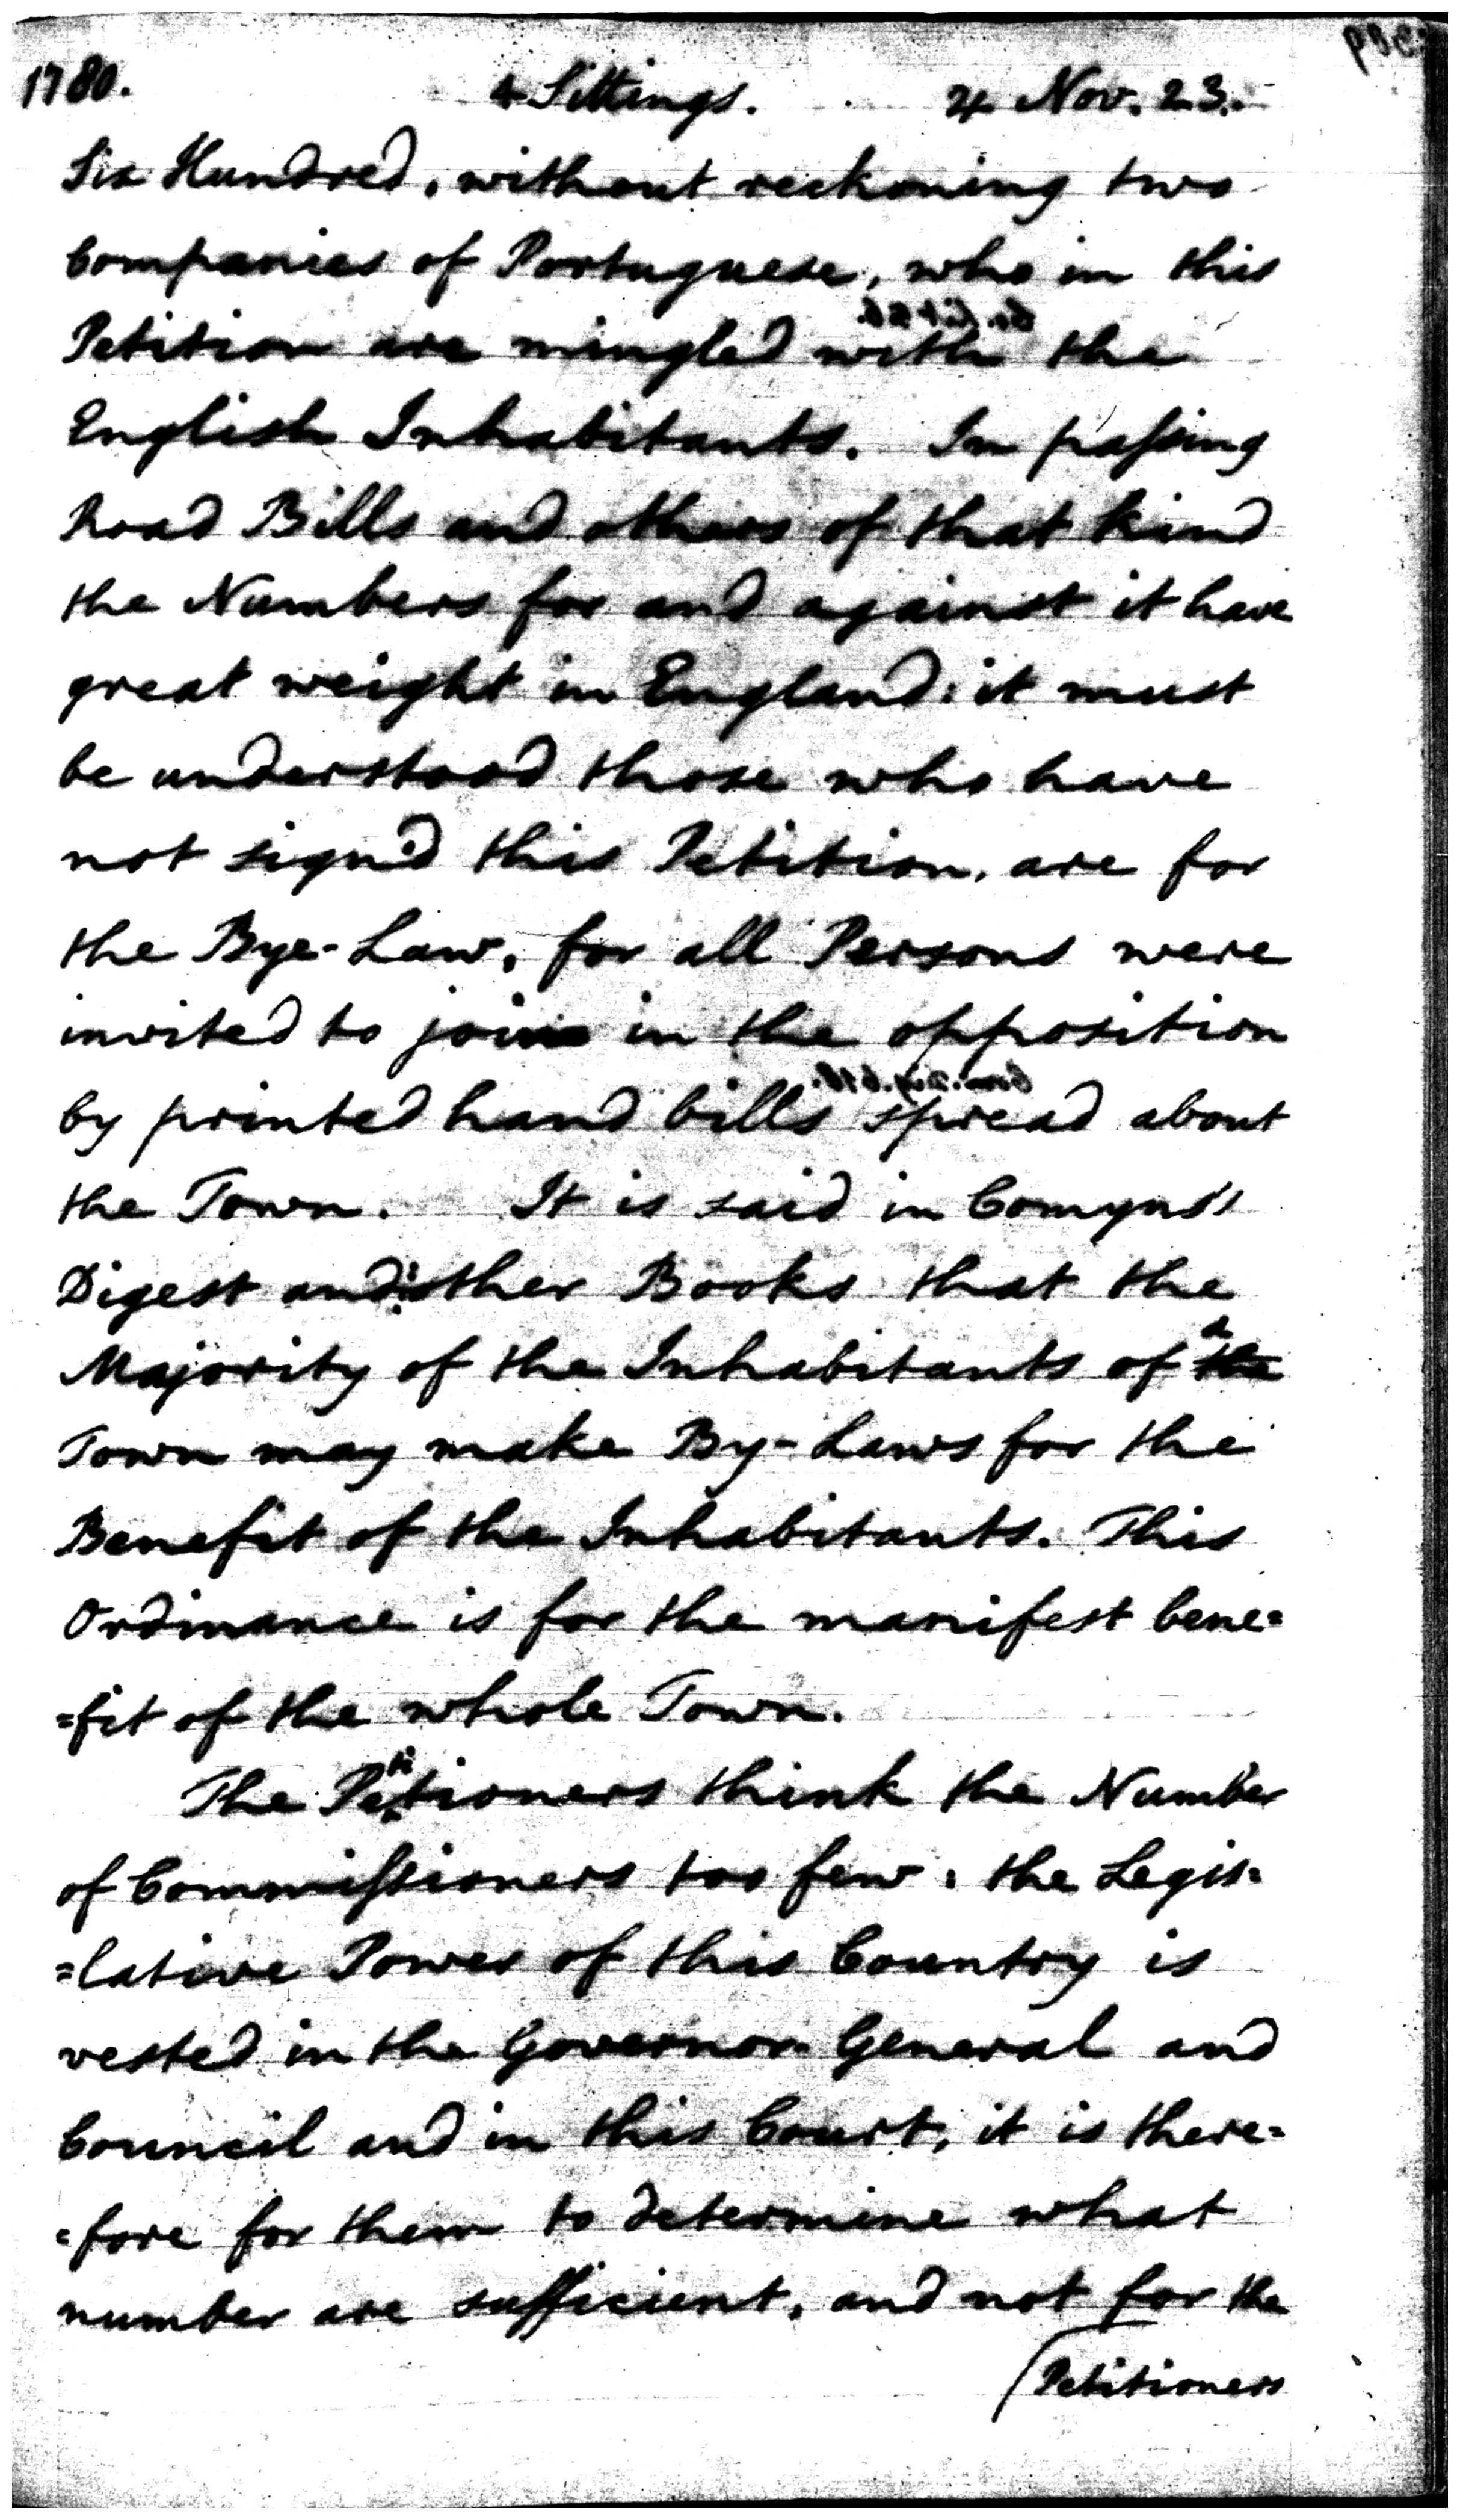 1780. 4 Sittings. ♃ Nov. 23.
Six Hundred, without reckoning two
Companies of Portuguese, who in this
Petition are mingled with the
English Inhabitants. In paſsing
Road Bills and others of that kind
the Numbers for and against it have
great weight in England: it must
be understood those who have
not sign'd this Petition, are for
the Bye-Law, for all Persons were
invited to join in the opposition
by printed hand bills spread about
the Town. It is said in Comyns's
Digest and other Books that the
Majority of the Inhabitants of a the
Town may make By-Laws for the
Benefit of the Inhabitants. This
Ordinance is for the manifest bene=
=fit of the whole Town.
The Petitioners think the Number
of Commiſsioners too few: the Legis=
=lative Power of this Country is
vested in the Governor General and
Council and in this Court, it is there=
=fore for them to determine what
number are sufficient, and not for the
Petitioners